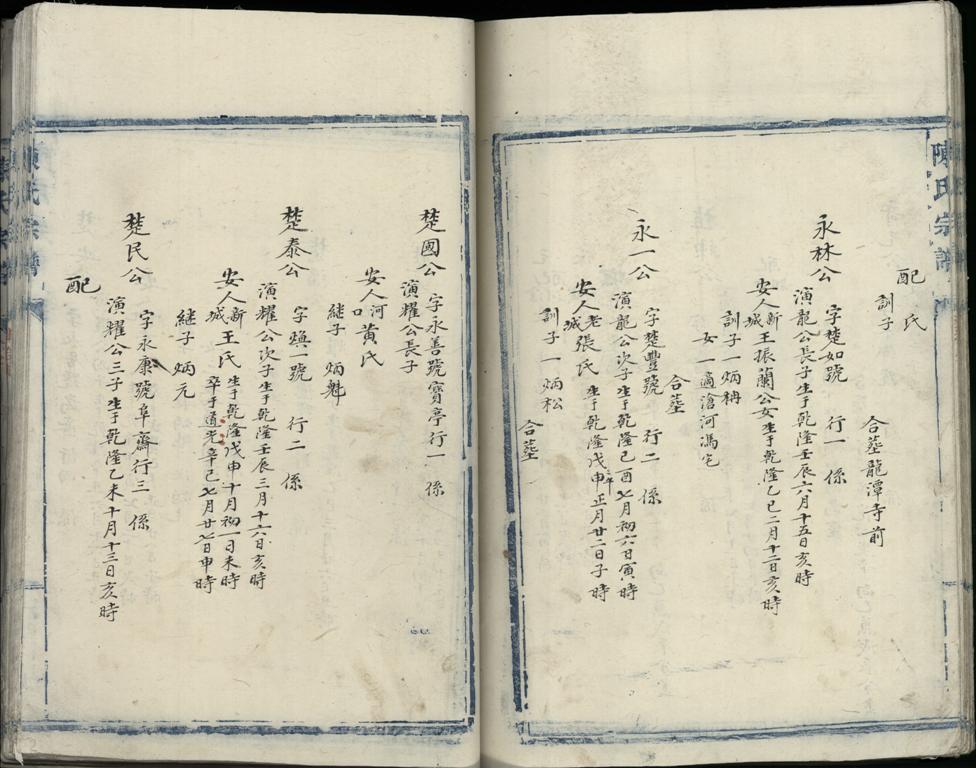 陳氏宗譜
配　氏
訓子
合塟龍潭寺前
永林公
字楚如號　行一　係
演龍公長子生于乾隆壬辰六月十五日亥時
安人新城王振蘭公女生于乾隆乙巳二月十二日亥時
訓子一炳稱
女一適滄河馮宅
合塟
永一公
字楚豐號　行二　係
演龍公次子生于乾隆己酉七月初六日寅時
安人老城張氏　生于乾隆戊申年正月廿二日子時
訓子一　炳松
合塟
楚國公
字永善號寶亭行一　係
演耀公長子
安人河口黃氏
継子　炳魁
楚泰公
字煥一號　行二　係
演耀公次子生于乾隆壬辰三月十六日亥時
安人新城王氏　生于乾隆戊申十月初一日未時
卒于道光辛巳七月廿七日申時
継子　炳元
楚民公
字永康號阜齋行三　係
演耀公三子生于乾隆乙未十月十三日亥時
配
陳氏宗譜